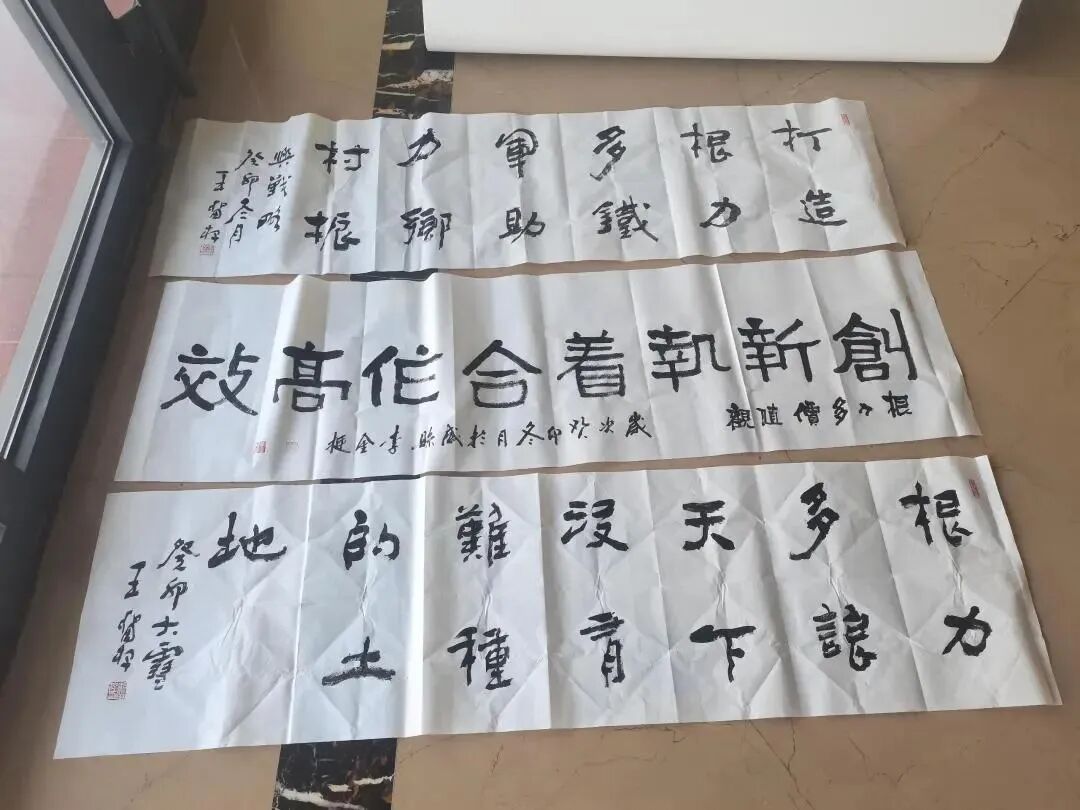 打造
根力
多鐵
軍助
力鄉
村振
興戰略
癸卯冬月
王
創新執着合作高效
根力多價值觀
歲次癸卯冬月於
李金
根力
多誏
天下
沒有
難種
的土
地
癸卯大雪
王